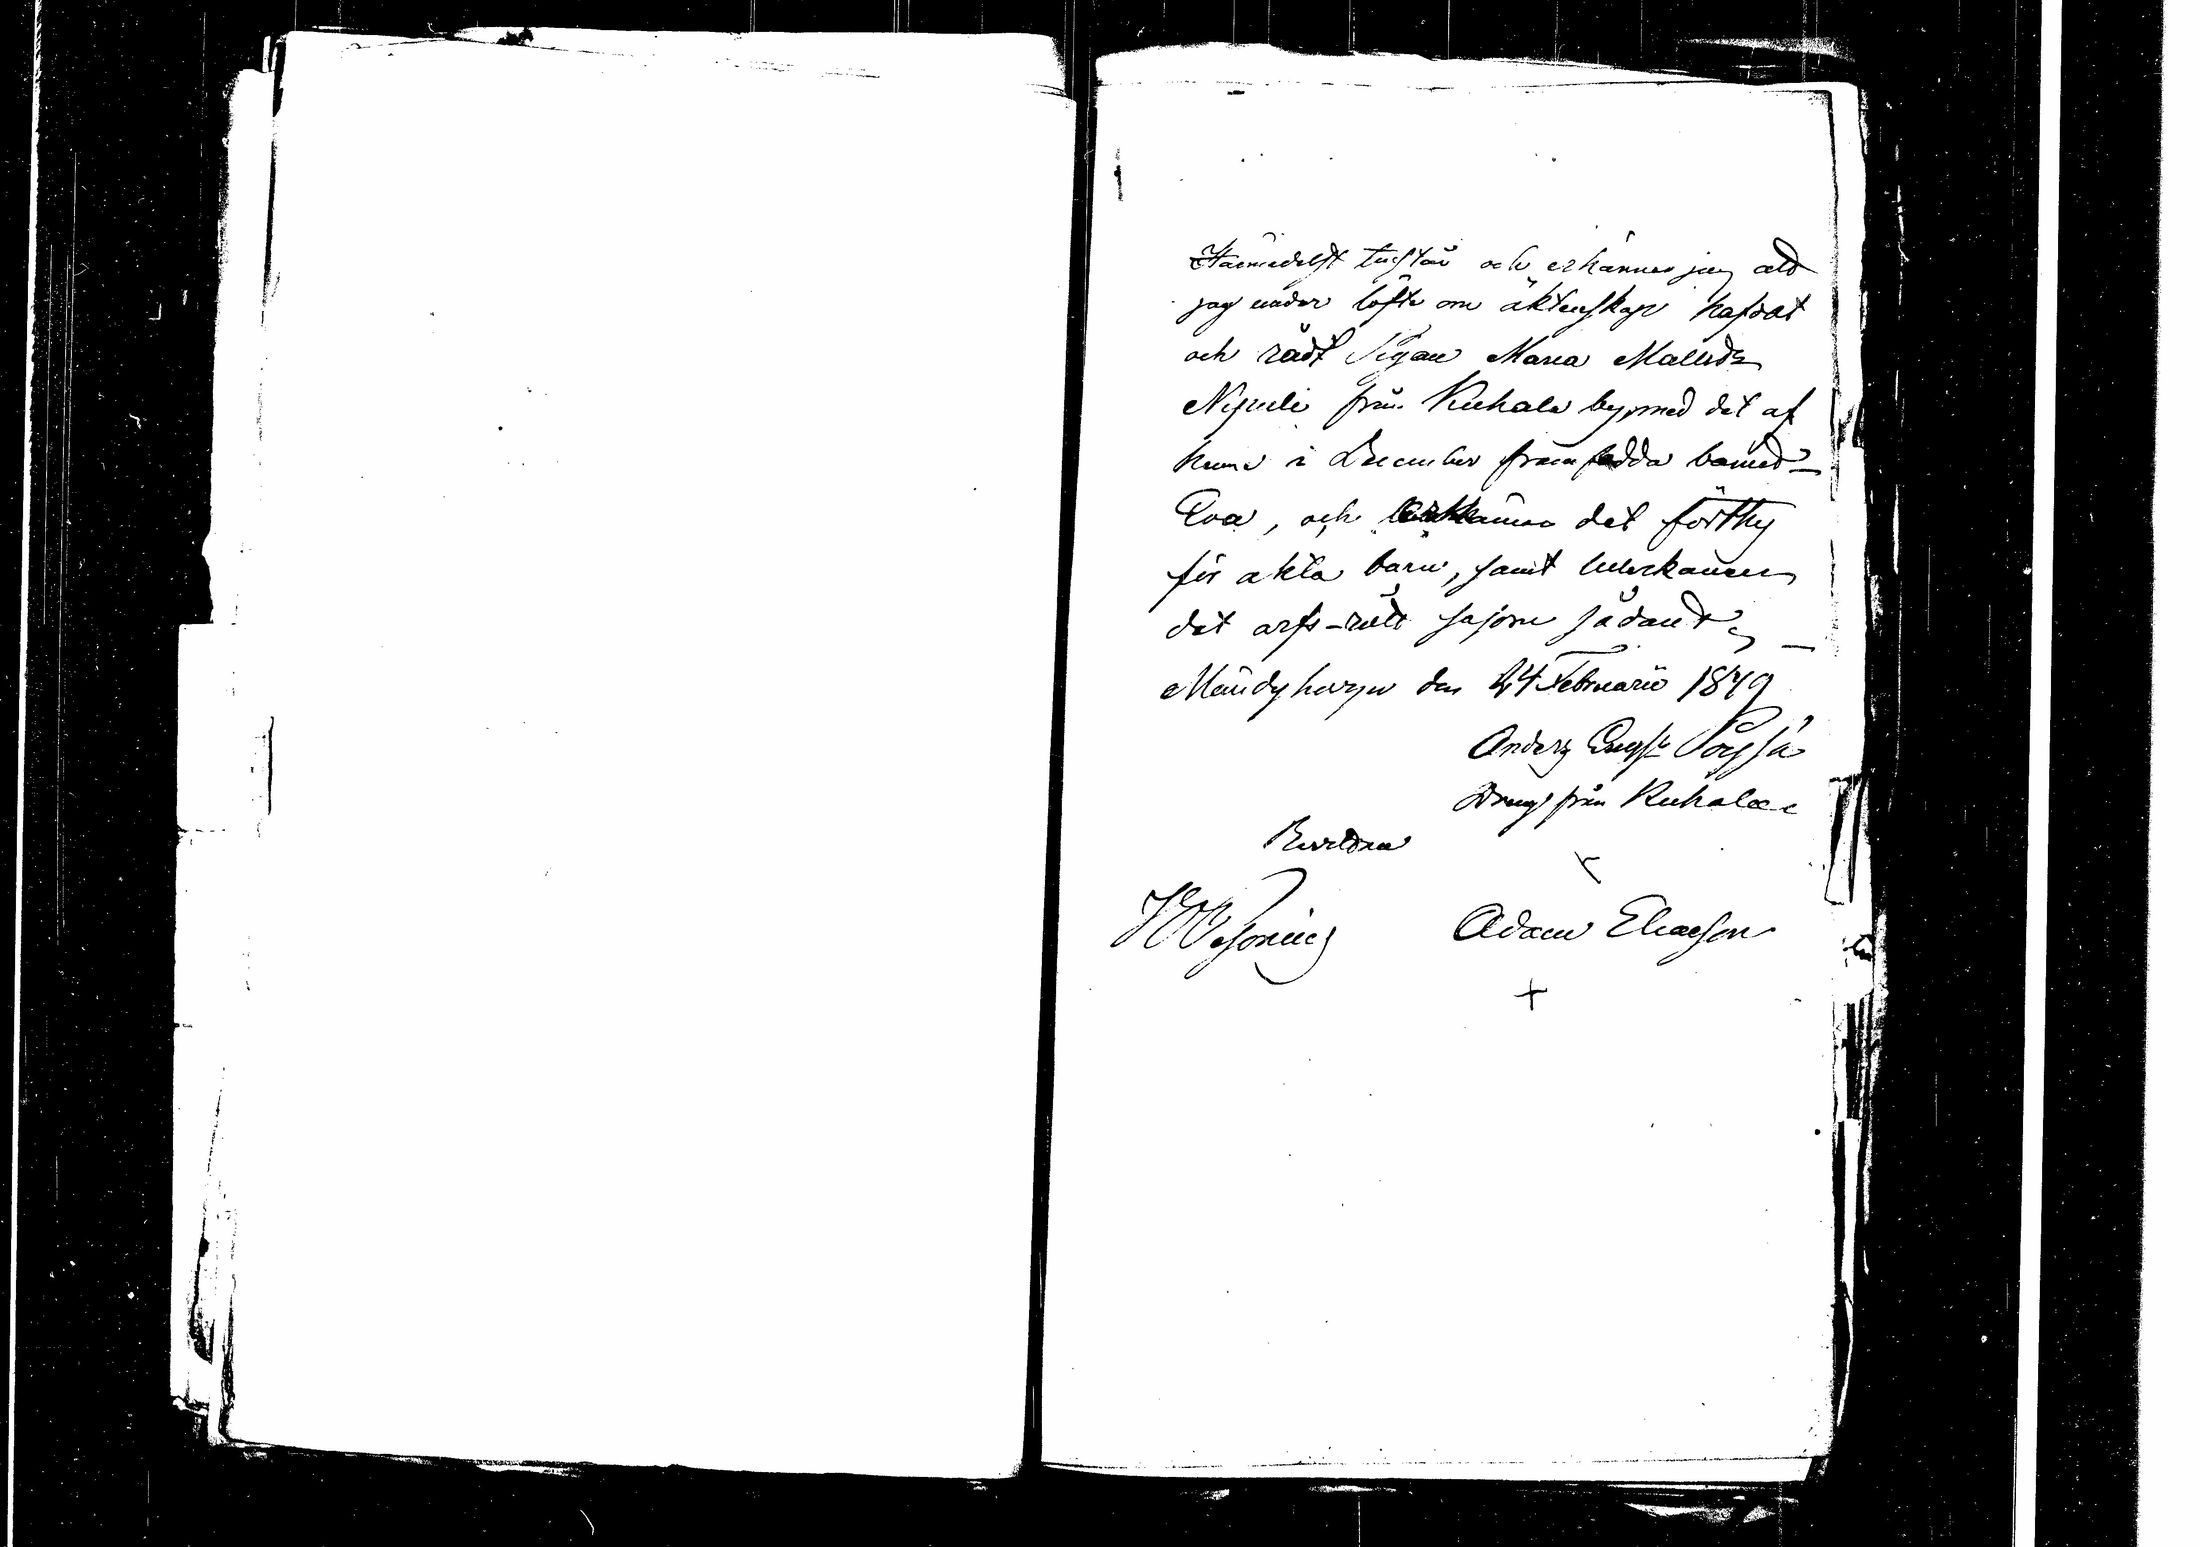 Härmedelst tillstår och erkänner jag att
jag under löfte om äktenskap häfdat
och rådt Pigan Maria Matlida
från Kuhala by, med det af
henne i December framfödda barnet
Eva, och erkänner det förthy
för äkta barn, samt tillerkänner
det arfs-rätt såsom sådant
den 24 Februarii 1849
Anders
Dreng från Kuhala
Bevittna
Adam Eliasson
+